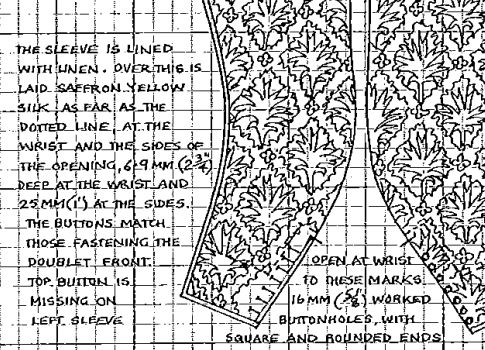 THE SLEEVE IS LINED
WITH LINEN. OVER THIS IS
LAID SAFFRON YELLOW
SILK AS FAR AS THE
DOTTED LINE AT THE
WRIST AND THE SIDES OF
THE OPENING, 6·9 MM (2¾")
DEEP AT THE WRIST AND
25 MM (1") AT THE SIDES.
THE BUTTONS MATCH
THOSE FASTENING THE
DOUBLET FRONT.
TOP BUTTON IS
MISSING ON
LEFT SLEEVE
OPEN AT WRIST
TO THESE MARKS
16 MM (⅝") WORKED
BUTTONHOLES, WITH
SQUARE AND ROUNDED ENDS